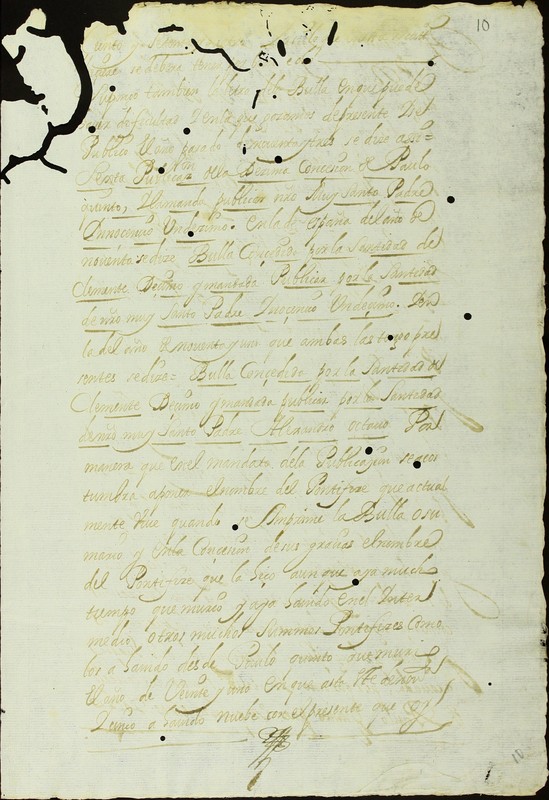 10
se debera
Supongo tambien la letra dela Bulla en que puede
de presente Del
Publico El año pasado de nouenta y tres se dice asi=
Sexta Publicaon. dela Decima Concesion de Paulo
quinto, Y Mandada publicar nro Muy santo Padre
Innocencio Undezimo. En la de españa del año de
nouenta se dize Bulla Concedida por la Santidad de
Clemente Decimo y mandada Publicar por la Santidad
de nro muy Santo Padre Inocencio Undezimo. En
la del año de nouenta y uno que ambas las tengo pre
sentes se dize= Bulla Conçedida por la Santidad de
Clemente Decimo y mandada publicar por la Santidad
de nro muy Santo Padre Alexandro octauo Por
manera que en el mandato dela Publicazion se acos
tumbra a poner el nombre del Pontifize que actual
mente viue quando se Imprime la Bulla o su
mario y en la Concesion de sus gracias el nombre
del Pontifize que la hiço aunque aya mucho
tiempo que murio y aya hauido en el Inter
medio otros muchos Summos Pontifizes como
los a hauido desde Paulo quinto que murio
El año de Veinte y uno en que asta este de nou.ta
Y cinco a hauido nuebe con el presente que oy
10